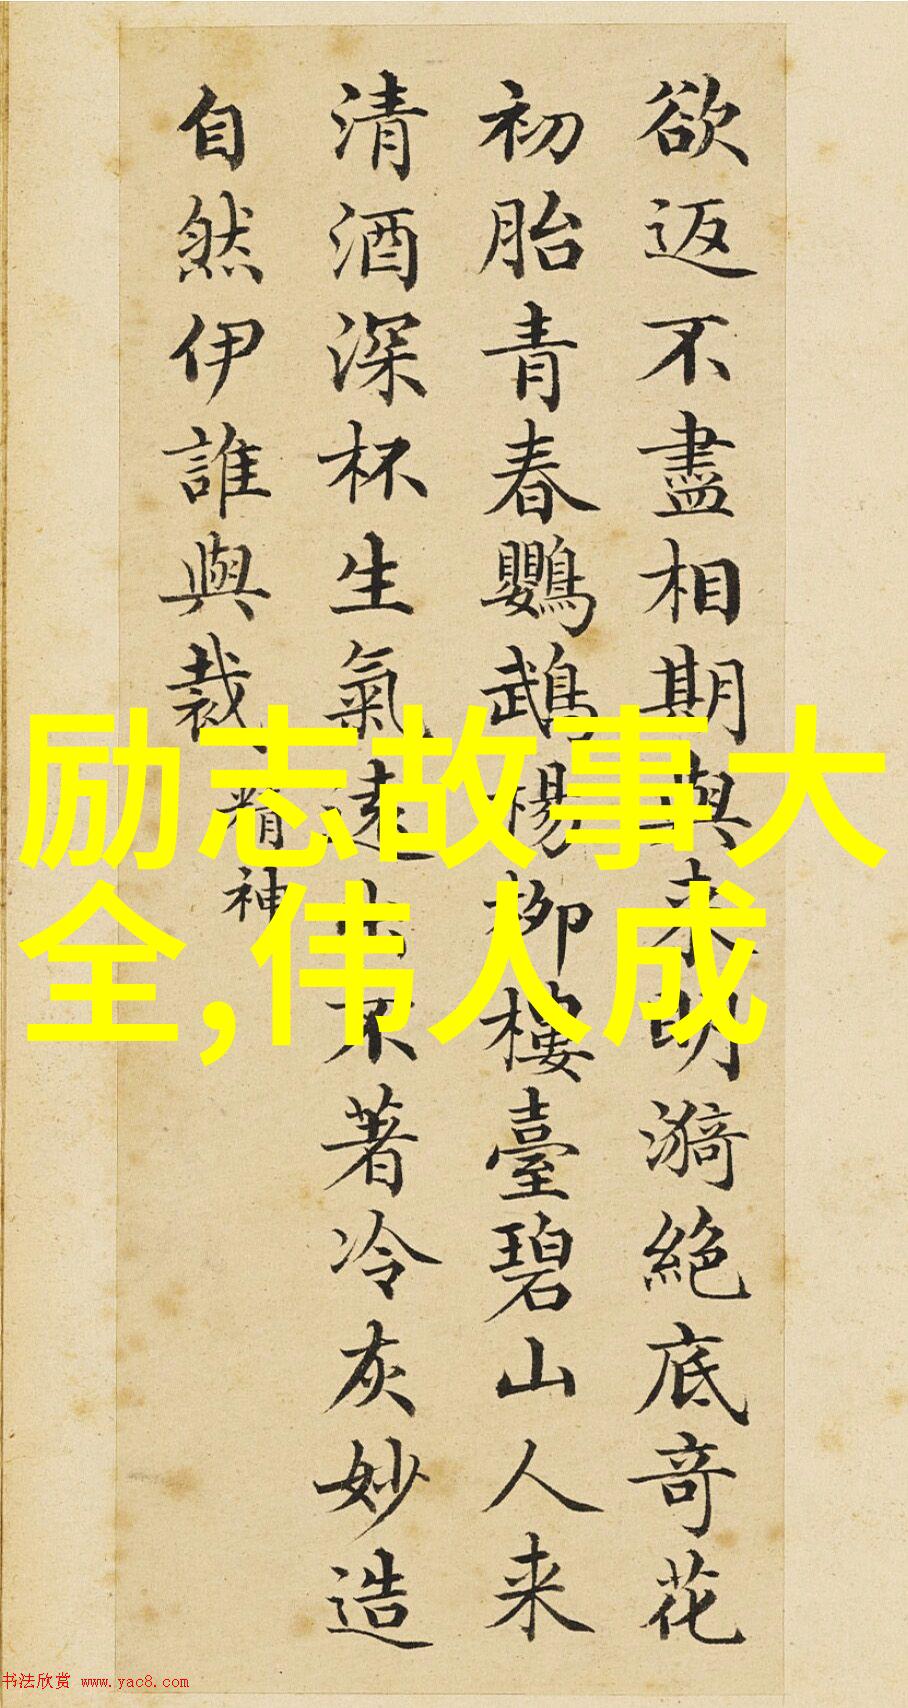 欲返不盡相期與来明漪絶底竒花
初胎青春鸚鵡楊柳樓臺碧山人来
清酒深杯生氣遠出不著冷灰妙造
自然伊誰與裁
精神
励志故事大
全,伟人成
书法欣赏 www.yac8.com